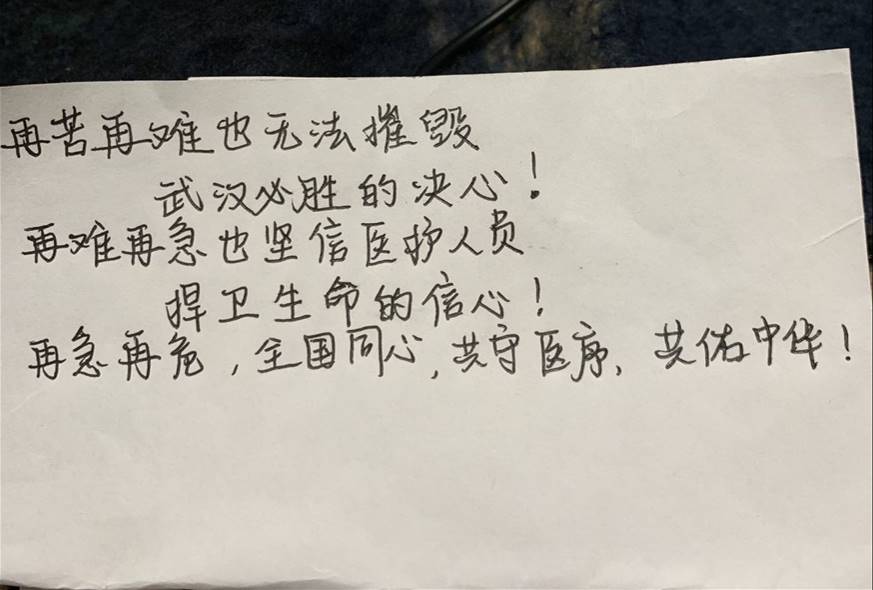 再苦再难也无法摧毁
武汉必胜的决心！
再难再急也坚信医护人员
捍卫生命的信心！
再急再危，全国同心，共守医序，共佑中华！